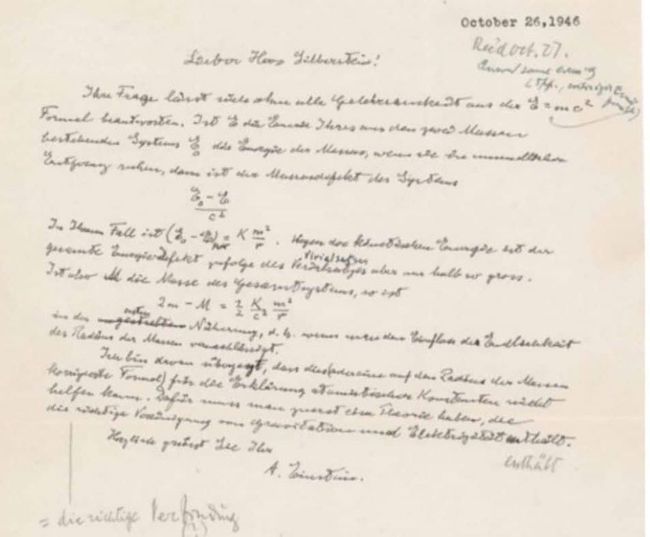 October 26, 1946
Rec'd oct. 27.
Lieber Herr Silberstein!
Ihre Frage lässt sich ohne alle Gelehrsamkeit aus der E = mc²
Formel beantworten. Ist E die Energie Ihres aus den zwei Massen
bestehenden Systems E₀ die Energie der Massen, wenn sie in unendlicher
Entfernung ruhen, dann ist der Massendefekt des Systems
E₀ - E
c²
In Ihrem Fall ist (E₀ - E) = K m²/r. Wegen der kinetischen Energie ist der
gesamte Energiedefekt zufolge des Virialsatzes aber nur halb so gross.
Ist also M die Masse des Gesamtsystems, so ist
2m - M = 1/2 K/c² m²/r
in der ersten Näherung, d. h. wenn man den Einfluss der Endlichkeit
des Radius der Massen vernachlässigt.
Ich bin davon überzeugt, dass die auf den Radius der Massen
korrigierte Formel) für die Erklärung atomistischer Konstanten nicht
helfen kann. Dafür muss man zuerst eine Theorie haben, die
die richtige Vereinigung von Gravitation und Elektrizität enthält.
enthält
Herzlich grüsst Sie Ihr
A. Einstein.
= die richtige